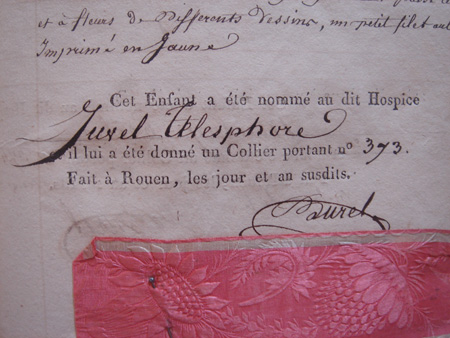 et à fleurs de Differents Dessins, un petit filet aut
Imprimé en Jaune
Cet Enfant a été nommé au dit Hospice
Jurel Télesphore
il lui a été donné un Collier portant nº 373.
Fait à Rouen, les jour et an susdits.